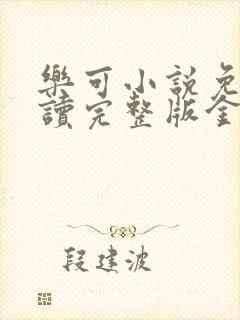 樂可小說免
讀完整版全
段建波